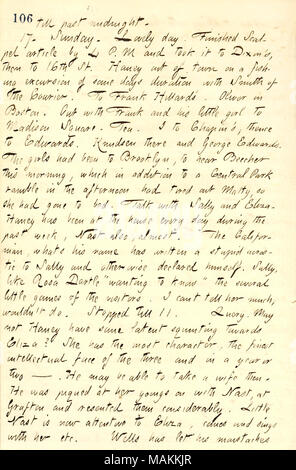 106 till past midnight.
17. Sunday. Lovely day. Finished Scal-
pel article by 4 P.M and took it to Dixon's,
then to 16th St. Haney out of town on a fish-
ing excursion of some days duration with Smith of
the Courier. To Frank Hillards. Oliver in
Boston. Out with Frank and his little girl to
Madison Square. Tea. I to Chapin's, thence
to Edwards. Knudsen there and George Edwards.
The girls had been to Brooklyn, to hear Beecher
this morning, which in addition to a Central Park
ramble in the afternoon had tired out Matty, so
she had gone to bed. Talk with Sally and Eliza.
Haney has been at the house every day during the
past week, Nast also, almost. The Califor-
nian, what's his name has written a stupid acros-
tic to Sally and otherwise declared himself. Sally,
like Rosa Dartle "wanting to know" the several
little games of the visitors. I can't tell her much,
wouldn't do. Stopped till 11. Query. May
not Haney have some latent squinting towards
Eliza? She has the most character, the finest
intellectual face of the three and in a year or
two —. He may be able to take a wife then.
He was piqued at her goings on with Nast, at
Grafton and resented them considerably. Little
Nast is now attentive to Eliza, dances and sings
with her etc. Wells has let his mustaches
alamy
Image ID: MAKKJR
www.alamy.com